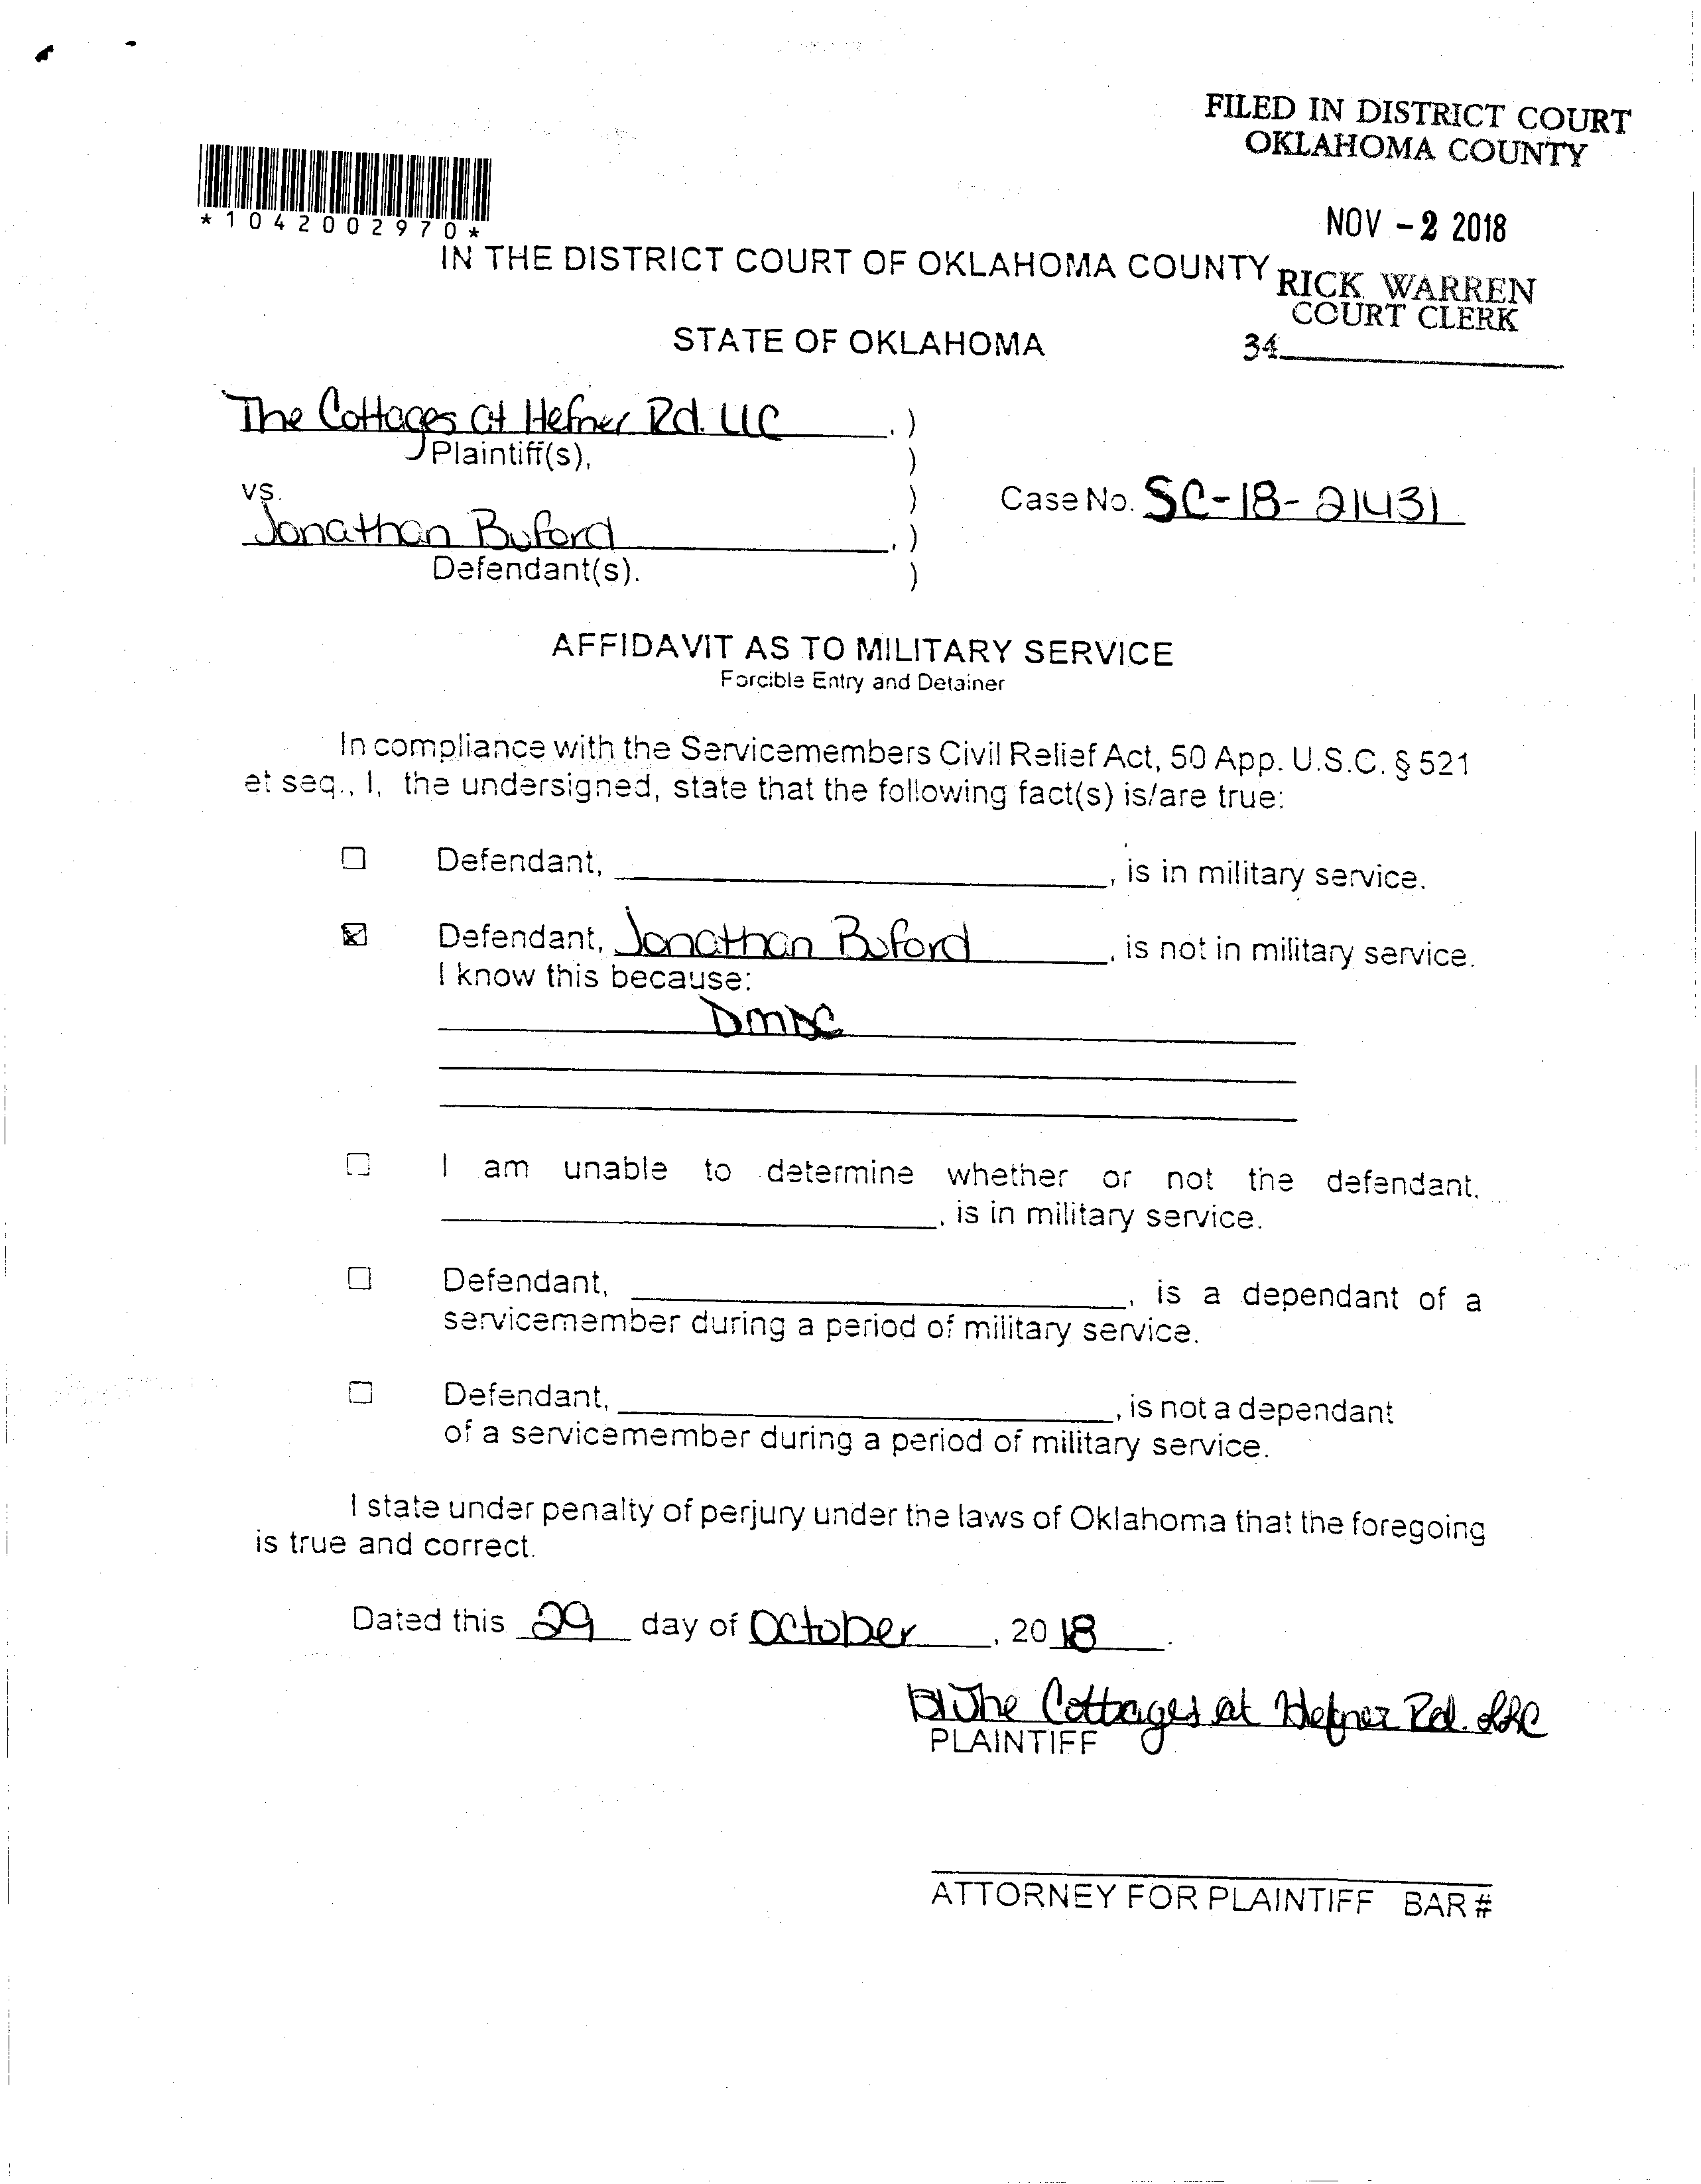 FILED IN DISTRICT COURT
OKLAHOMA COUNTY
*1042002970*
NOV - 2 2018
IN THE DISTRICT COURT OF OKLAHOMA COUNTY
RICK WARREN
COURT CLERK
STATE OF OKLAHOMA
34
The Cottages at Hefner Rd. LLC , )
Plaintiff(s), )
vs. )
Case No. SC-18-21431
Jonathan Buford , )
Defendant(s). )
AFFIDAVIT AS TO MILITARY SERVICE
Forcible Entry and Detainer
In compliance with the Servicemembers Civil Relief Act, 50 App. U.S.C. § 521
et seq., I, the undersigned, state that the following fact(s) is/are true:
☐ Defendant, , is in military service.
☒ Defendant, Jonathan Buford , is not in military service.
I know this because:
DMDC
☐ I am unable to determine whether or not the defendant,
, is in military service.
☐ Defendant, , is a dependant of a
servicemember during a period of military service.
☐ Defendant, , is not a dependant
of a servicemember during a period of military service.
I state under penalty of perjury under the laws of Oklahoma that the foregoing
is true and correct.
Dated this 29 day of October , 20 18 .
The Cottages at Hefner Rd. LLC
PLAINTIFF
ATTORNEY FOR PLAINTIFF BAR #